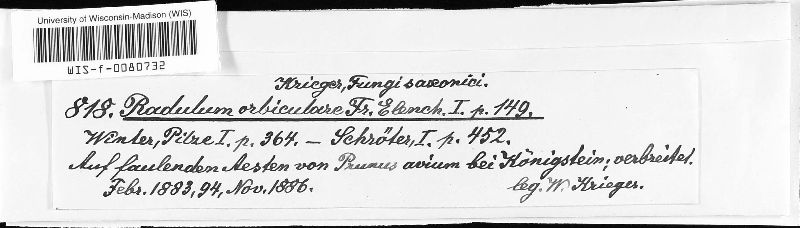 University of Wisconsin-Madison (WIS)
WIS-f-0080732
Krieger, Fungi saxonici.
818. Radulum orbiculare Fr. Elench. I. p. 149.
Winter, Pilze I. p. 364. — Schröter, I. p. 452.
Auf faulenden Aesten von Prunus avium bei Königstein; verbreitet.
Febr. 1883, 94, Nov. 1886.
leg. W. Krieger.